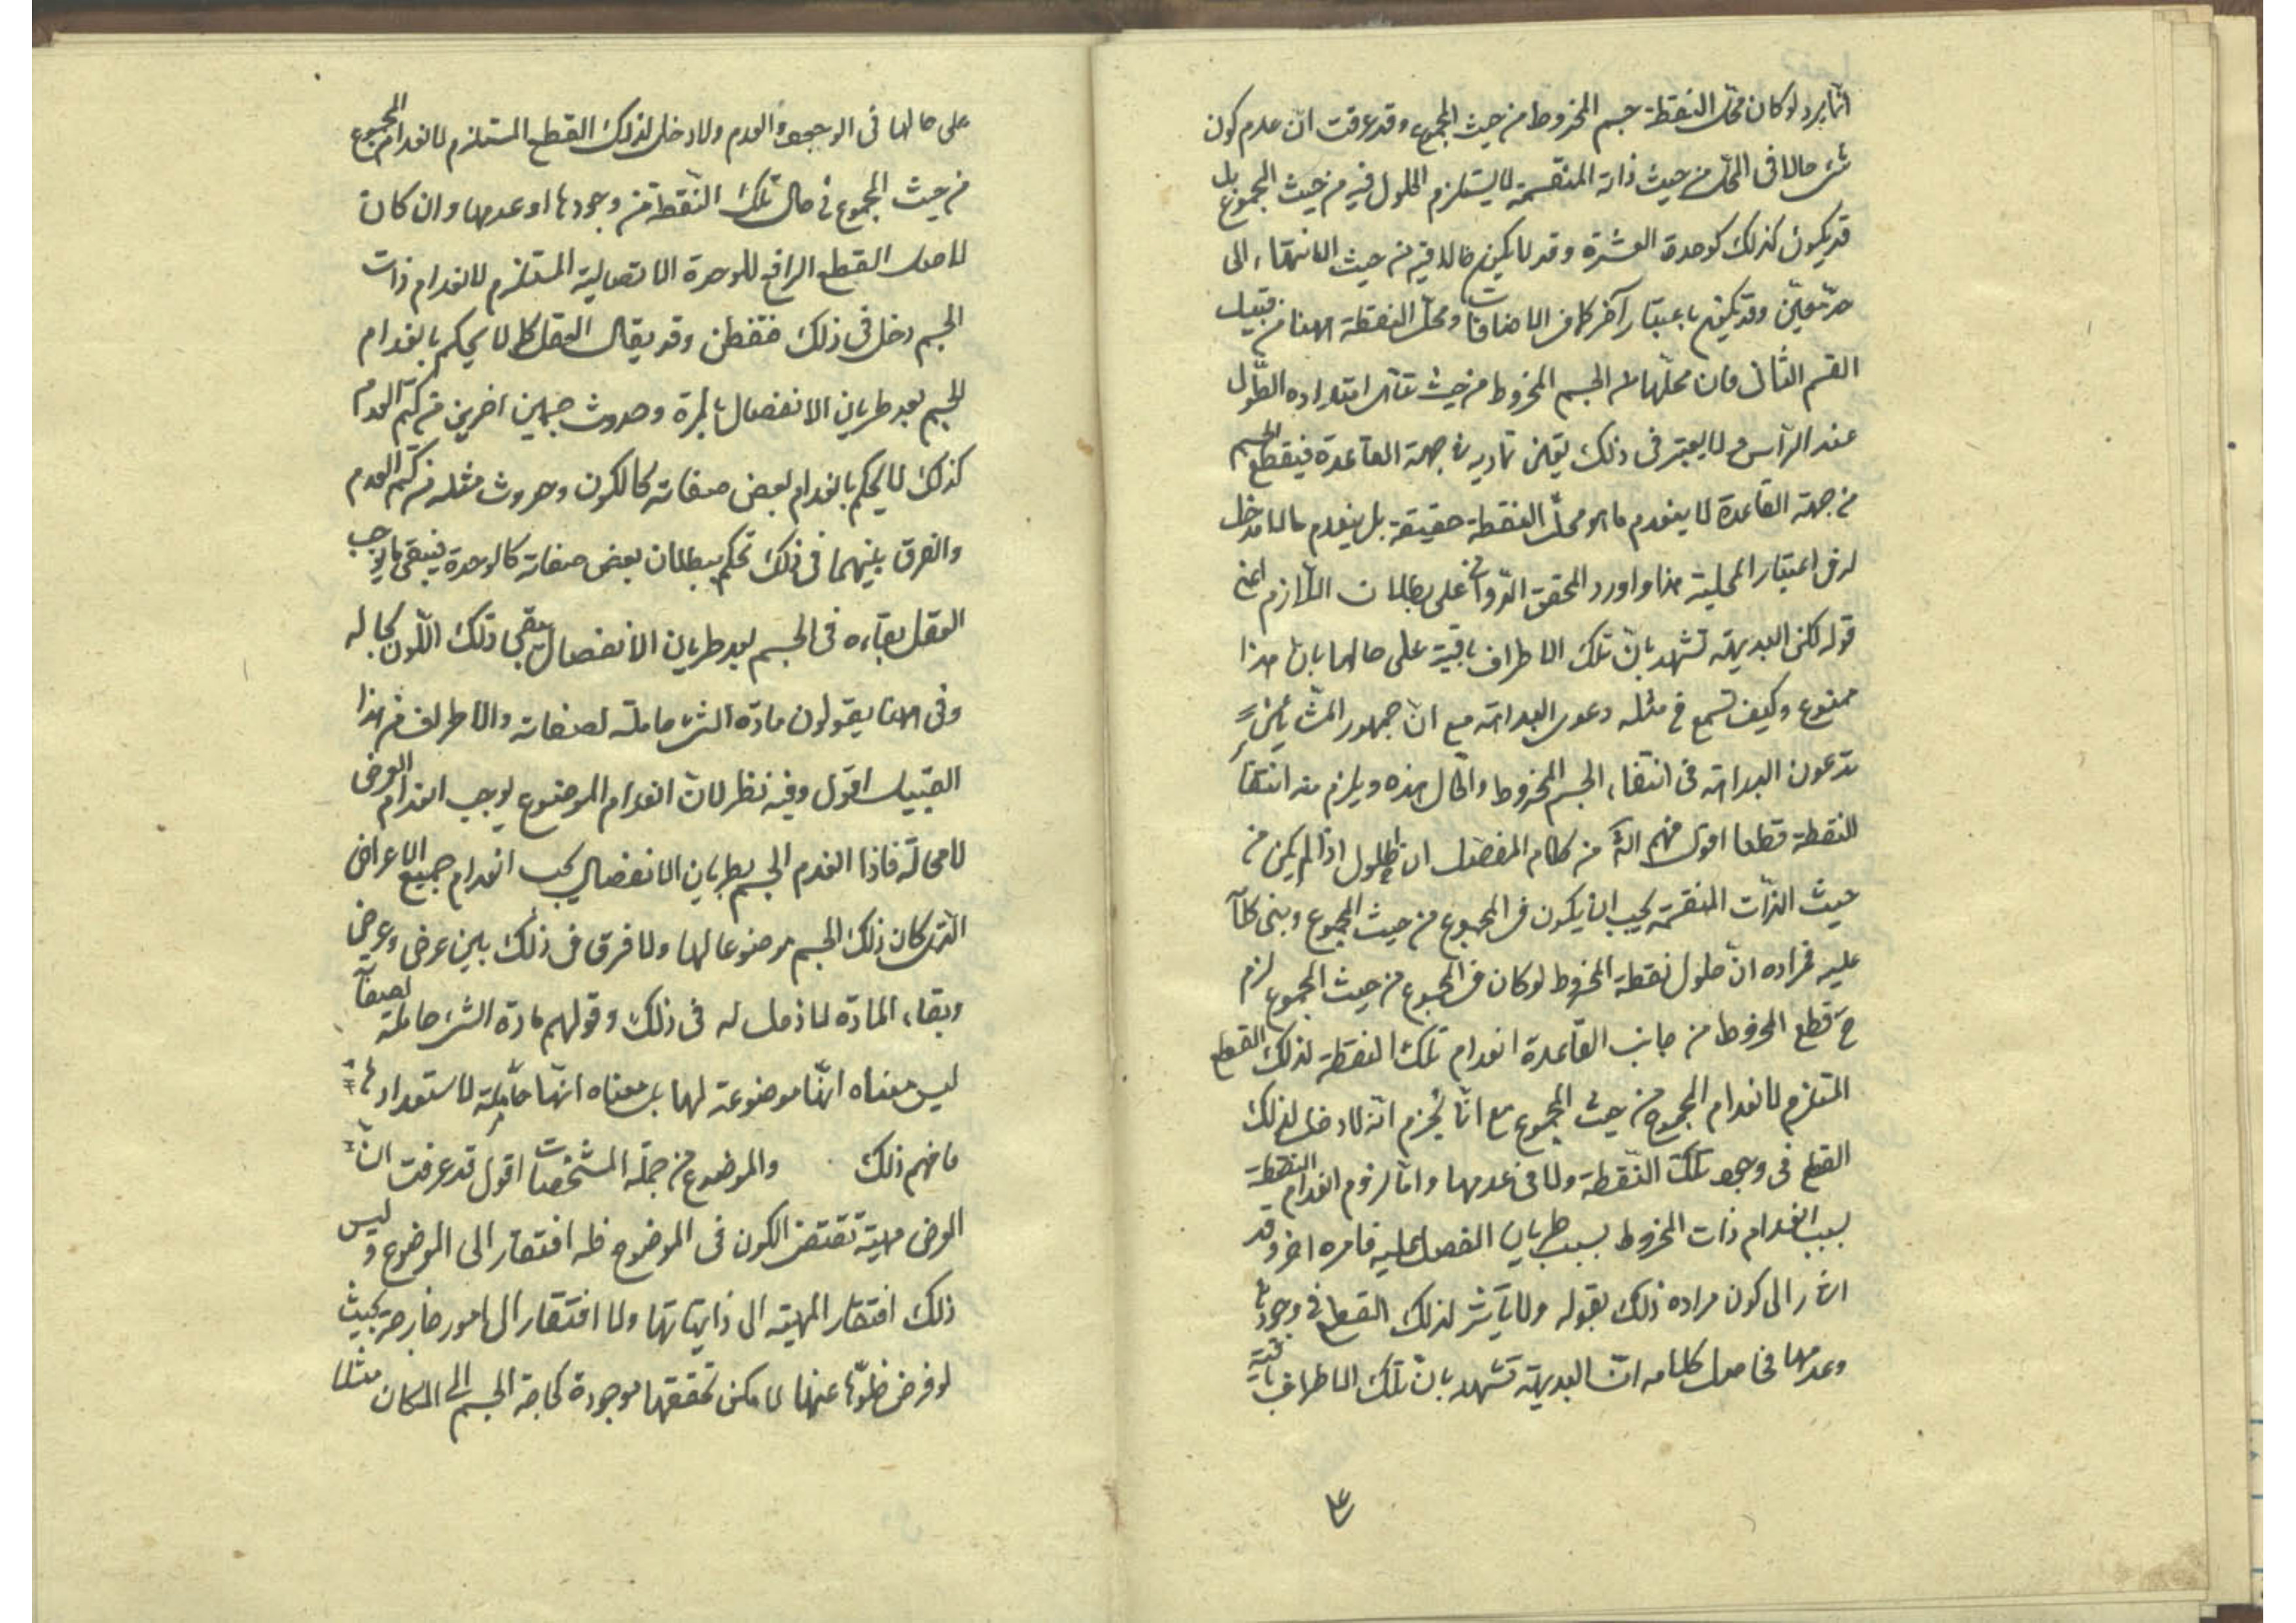 انّما يرد لو كان محلّ النقطة جسم المخروط من حيث المجموع وقد عرفت انّ عدم كون
شئ حالا فى المحلّ من حيث ذاته المنقسمة لا يستلزم الحلول فيه من حيث المجموع بل
قد يكون كذلك كوحدة العشرة وقد لا يكون حالا فيه من حيث الانتهاء الى
حدّ معيّن وقد يكون باعتبار آخر كما فى الاضافات ومحلّ النقطة ههنا من قبيل
القسم الثانى فان محلّها هو الجسم المخروط من حيث تناهى امتداده الطّول
عند الرّأس ولا يعتبر فى ذلك تعيّن تماديه فى جهة القاعدة فبقطع الجسم
من جهة القاعدة لا ينعدم ما هو محلّ النقطة حقيقة بل ينعدم ما لا مدخل
له فى اعتبار المحلية هذا واورد المحقق الدّوانى على بطلان اللّازم اعنى
قوله لكن البديهة تشهد بانّ تلك الاطراف باقية على حالها بانّ هذا
ممنوع وكيف تسمع فى مثله دعوى البداهة مع انّ جمهور المشّائين
يدّعون البداهة فى انتفاء الجسم المخروط والحال هذه ويلزم منه انتفاء
النقطة قطعا اقول فهم انّه من كلام المفصل ان الحلول اذا لم يكن من
حيث الذّات المنقسمة يجب ان يكون فى المجموع من حيث المجموع وبنى كلامه
عليه فمراده انّ حلول نقطة المخروط لو كان فى المجموع من حيث المجموع لزم
ح قطع المخروط من جانب القاعدة انعدام تلك النقطة لذلك القطع
المستلزم لانعدام المجموع من حيث المجموع مع انّا نجزم انّه لا دخل لذلك
القطع فى وجود تلك النّقطة ولا فى عدمها وامّا لزوم انعدام النقطة
بسبب انعدام ذات المخروط بسبب طريان الفصل عليه فامره اخر وقد
اشار الى كون مراده ذلك بقوله ولا تأثير لذلك القطع فى وجودها
وعدمها فحاصل كلامه انّ البديهة تشهد بانّ تلك الاطراف باقية
على حالها فى الوجود والعدم ولا دخل لذلك القطع المستلزم لانعدام المجموع
من حيث المجموع فى حال تلك النّقطة من وجودها او عدمها وان كان
لاصل القطع الرافع للوحدة الاتصالية المستلزم لانعدام ذات
الجسم دخل فى ذلك فتفطن وقد يقال العقل كما لا يحكم بانعدام
الجسم بعد طريان الانفصال بالمرّة وحدوث جسمين اخرين من كتم العدم
كذلك لا يحكم بانعدام بعض صفاته كاللون وحدوث مثله من كتم العدم
والفرق بينهما فى ذلك تحكم ببطلان بعض صفاته كالوحدة فيبقى ما يوجب
العقل بقاءه فى الجسم بعد طريان الانفصال يبقى ذلك اللّون بحاله
وفى ههنا يقولون مادّة الشئ حاملة لصفاته والاطراف من هذا
القبيل اقول وفيه نظر لانّ انعدام الموضوع يوجب انعدام العرض
لا محالة فاذا انعدم الجسم بطريان الانفصال يجب انعدام جميع الاعراض
الّتى كان ذلك الجسم موضوعا لها ولا فرق فى ذلك بين عرض وعرض
وبقاء المادّة لا دخل له فى ذلك وقولهم مادة الشئ حاملة لصفاته
ليس معناه انّها موضوعة لها بل معناه انّها حاملة لاستعدادها
فافهم ذلك والموضوع من جملة المشخّصات اقول قد عرفت انّ
العرض مهيّة تقتضى الكون فى الموضوع فله افتقار الى الموضوع وليس
ذلك افتقار المهيّة الى ذاتياتها ولا افتقار الى امور خارجة بحيث
لو فرض خلوّها عنها لا مكن تحققها موجودة كحاجة الجسم الى المكان مثلا